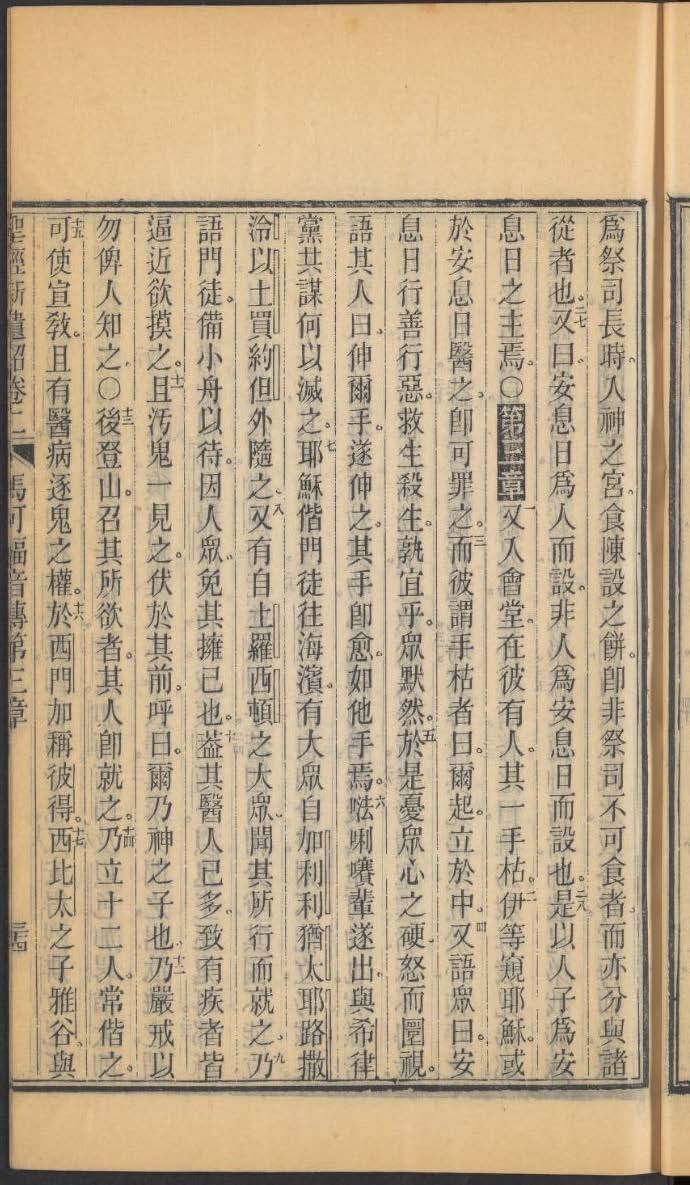 為祭司長時入神之宮食陳設之餅。卽非祭司不可食者。而亦分與諸
從者也。二七又曰。安息日為人而設。非人為安息日而設也。二八是以人子為安
息日之主焉。〇第三章一又入會堂。在彼有人。其一手枯。二伊等窺耶穌。或
於安息日醫之。卽可罪之。三而彼謂手枯者曰。爾起。立於中。四又語眾曰。安
息日行善行惡。救生殺生。孰宜乎。眾默然。五於是憂眾心之硬。怒而圜視。
語其人曰。伸爾手。遂伸之。其手卽愈。如他手焉。六𠵽唎㘔輩遂出。與希律
黨共謀何以滅之。七耶穌偕門徒往海濱。有大眾自加利利猶太耶路撒
冷以土買約但外隨之。八又有自土羅西頓之大眾。聞其所行而就之。九乃
語門徒。備小舟以待。因人眾。免其擁己也。十葢其醫人已多。致有疾者皆
逼近欲摸之。十一且汚鬼一見之。伏於其前。呼曰。爾乃神之子也。十二乃嚴戒以
勿俾人知之。〇十三後登山。召其所欲者。其人卽就之。十四乃立十二人。常偕之。
十五可使宣敎。且有醫病逐鬼之權。十六於西門加稱彼得。十七西比太之子雅谷與
聖經新遺詔卷二 馬可福音傳第三章 三十四